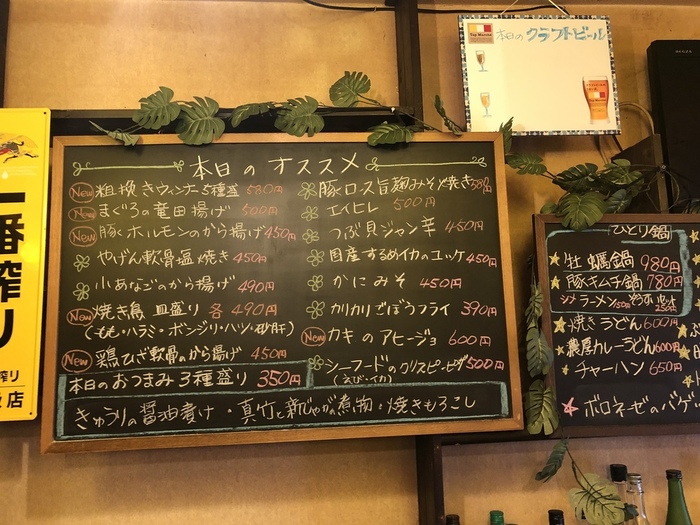 本日のクラフトビール
一番搾り
本日のオススメ
New 粗挽きウィンナー5種盛 580円
New まぐろの竜田揚げ 500円
New 豚ホルモンのから揚げ 450円
やげん軟骨塩焼き 450円
小あなごのから揚げ 490円
New 焼き鳥 皿盛り 各490円
(もも・ハラミ・ボンジリ・ハツ・砂肝)
New 鶏ひざ軟骨のから揚げ 450円
豚ロース旨麹みそ焼き 580円
エイヒレ 500円
つぶ貝ジャン辛 450円
国産するめイカの一夜干し 450円
かにみそ 450円
カリカリごぼうフライ 390円
New カキのアヒージョ 600円
シーフードのクリスピーピザ 500円
(えび・イカ)
本日のおつまみ3種盛り 350円
きゅうりの醤油漬け・真竹と新じゃがの煮物・焼きもろこし
ひとり鍋
牡蠣鍋 980円
豚キムチ鍋 780円
〆ラーメン 150円 ぞうすい 250円
焼きうどん 600円
濃厚カレーうどん 600円
チャーハン 650円
ボロネーゼのバゲ